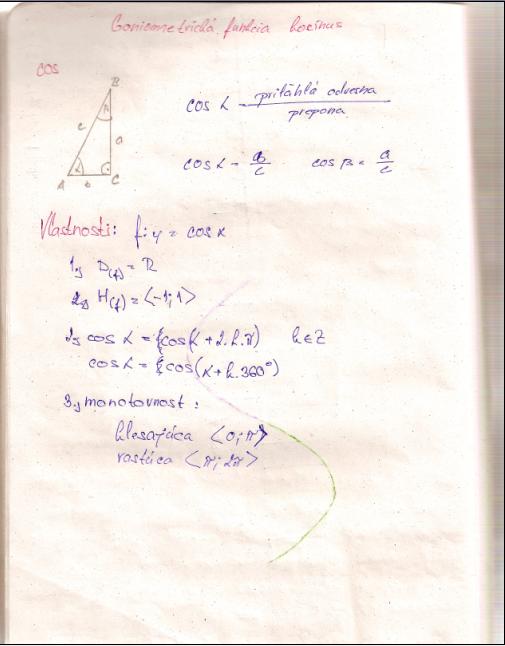 Goniometrická funkcia kosínus
cos
B
c
a
A
α
b
C
cos α = priľahlá odvesna / prepona
cos α = b/c cos β = a/c
Vlastnosti: f: y = cos x
1, D(f) = R
2, H(f) = <-1; 1>
2, cos α = cos(α + 2.k.π) k ∈ Z
cos α = cos(α + k.360°)
3, monotovnost :
klesajúca <0; π>
rastúca <π; 2π>